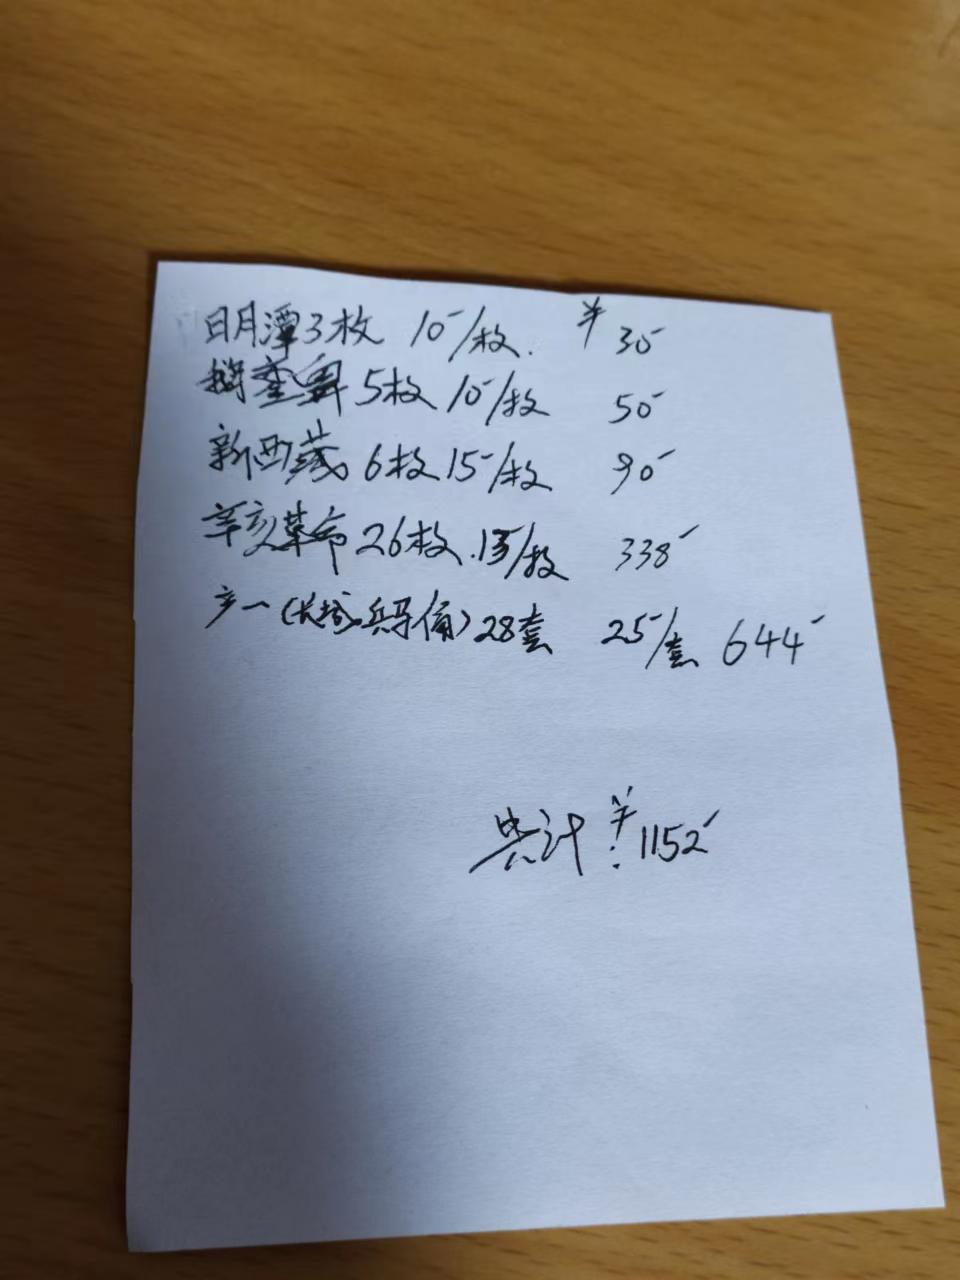 日月潭3枚 10-/枚. ¥ 30-
鹅銮鼻 5枚 10-/枚 50-
新西藏 6枚 15-/枚 90-
辛亥革命 26枚.13/枚 338-
产一(长城,兵马俑)28套 25-/套 644-
共计 ¥:1152-